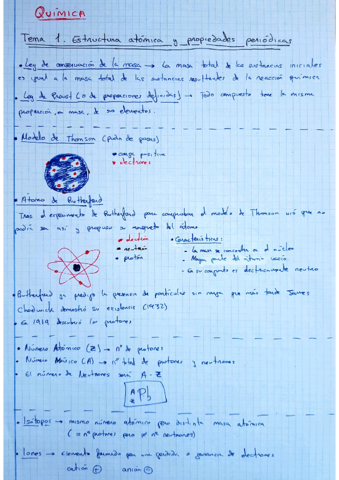 QUÍMICA
Tema 1. Estructura atómica y propiedades periódicas
• Ley de conservación de la masa → La masa total de las sustancias iniciales
es igual a la masa total de las sustancias resultantes de la reacción química
• Ley de Proust (o de proporciones definidas) → Todo compuesto tiene la misma
proporción, en masa, de sus elementos.
• Modelo de Thomson (pudin de pasas)
• carga positiva
• electrones
• Átomo de Rutherford
Tras el experimento de Rutherford para comprobar el modelo de Thomson vió que no
podía ser así y propuso su maqueta del átomo
• electrón
• neutrón
• protón
• Características:
- La masa se concentra en el núcleo
- Mayor parte del átomo vacía
- En su conjunto es eléctricamente neutro
• Rutherford ya predijo la presencia de partículas sin carga que más tarde James
Chadwick demostró su existencia (1932)
• En 1919 descubrió los protones
• Número Atómico (Z) → nº de protones
• Número Másico (A) → nº total de protones y neutrones
• El número de Neutrones será A - Z
A
Z Pb
• Isótopos → mismo número atómico pero distinta masa atómica
(= nº protones pero ≠ nº neutrones)
• Iones → elemento formado por una pérdida o ganancia de electrones
catión + anión -